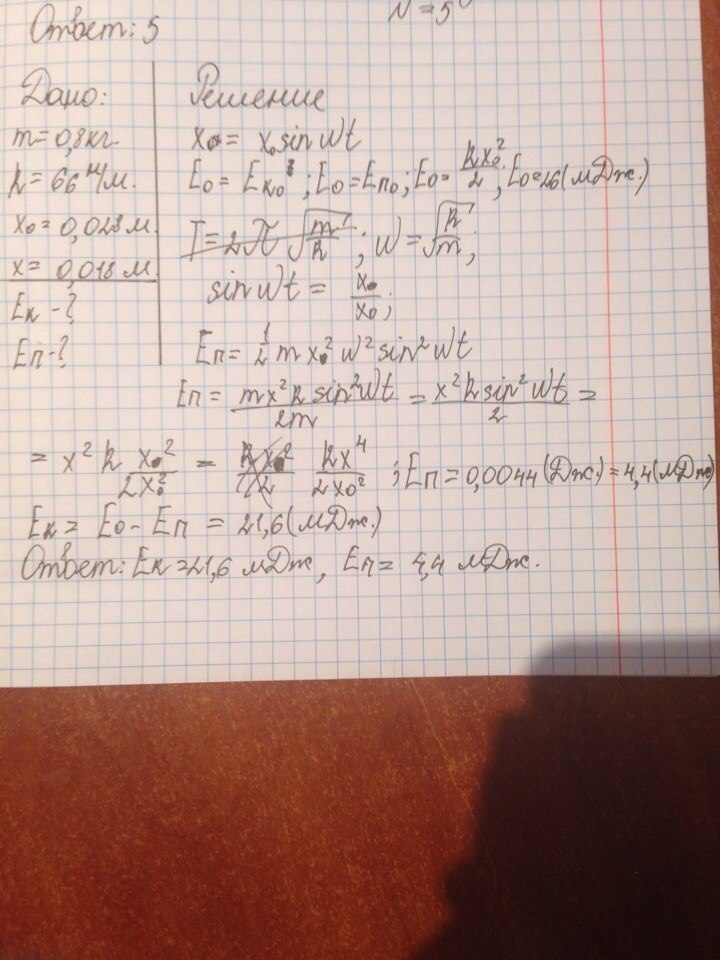 N = 5
Ответ: 5
Дано:
m = 0,8 кг.
k = 66 Н/м.
x₀ = 0,028 м.
x = 0,018 м.
Eк - ?
Eп - ?
Решение
x = x₀ sin Wt
E₀ = Eк₀ ; E₀ = Eп₀ ; E₀ = kx₀²/2 ; E₀ = 26 (мДж.)
T = 2π √(m/k) ; W = √(k/m) ;
sin Wt = x/x₀ ;
Eп = 1/2 m x² W² sin² Wt
Eп = mx² k sin² Wt / 2m = x² k sin² Wt / 2 =
= x² k x²/2x₀² = kx⁴/2x₀² ; Eп = 0,0044 (Дж.) = 4,4 (мДж)
Eк = E₀ - Eп = 21,6 (мДж.)
Ответ: Eк = 21,6 мДж, Eп = 4,4 мДж.